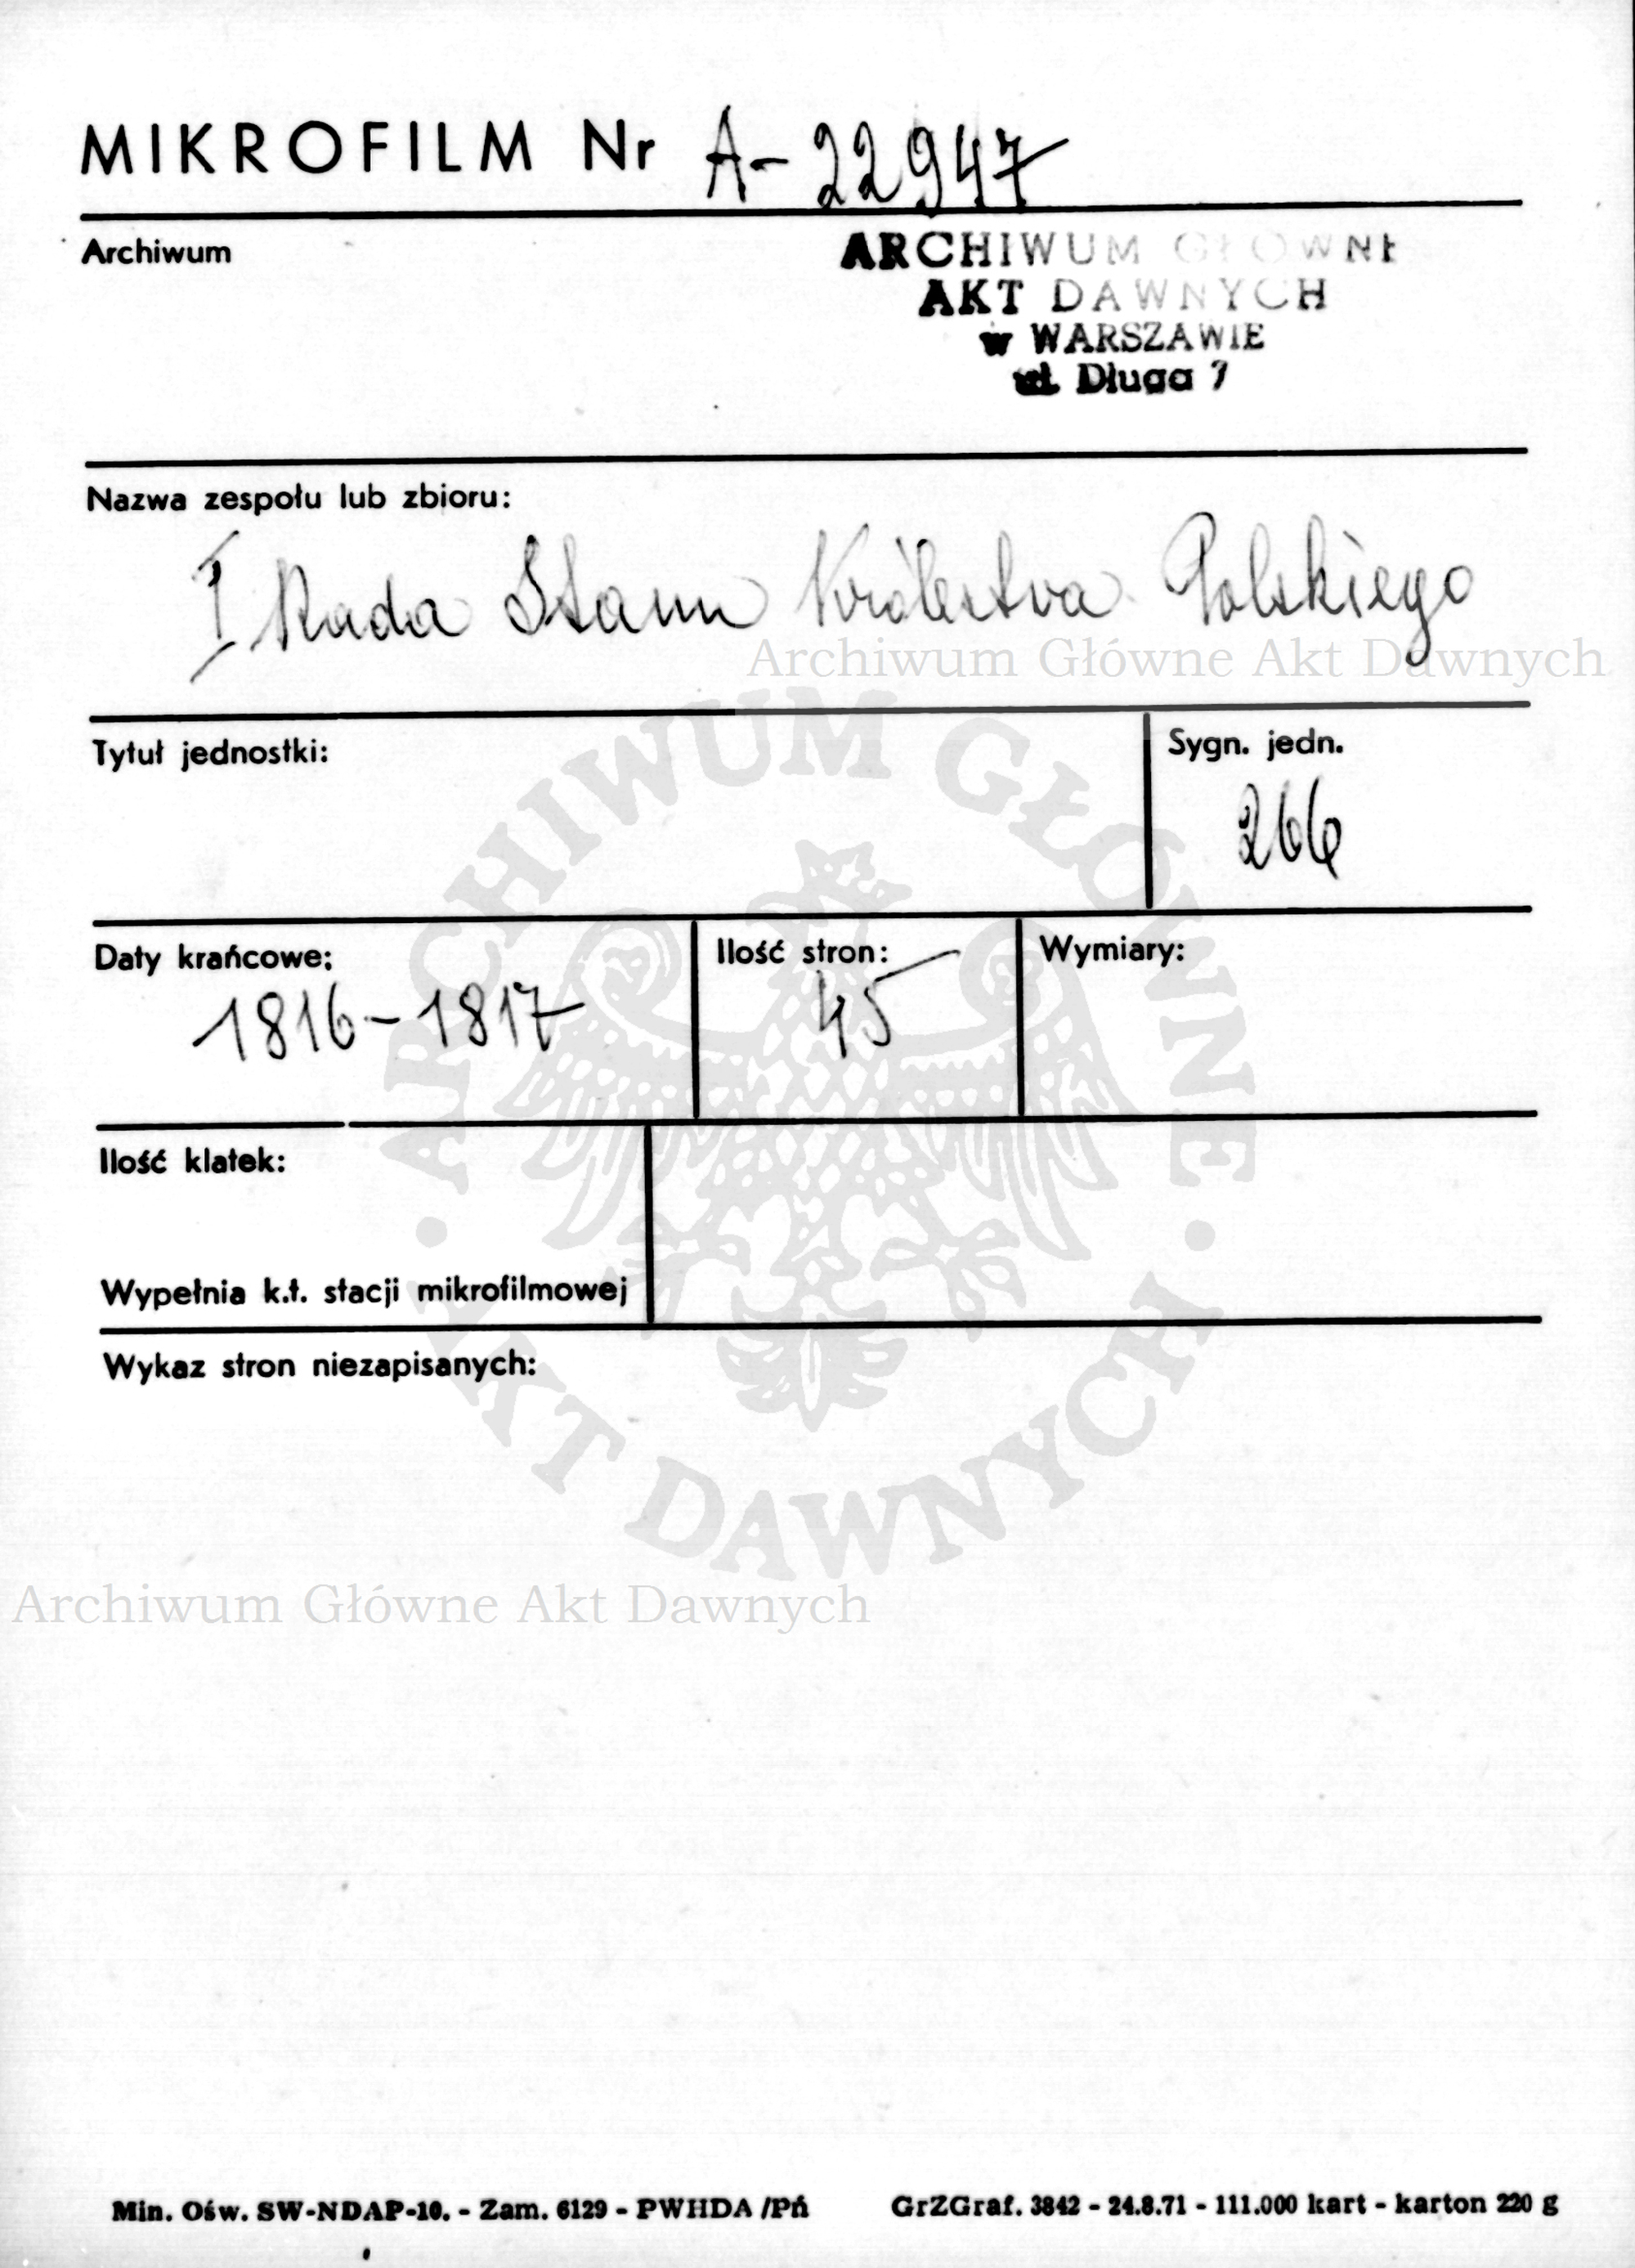 MIKROFILM Nr A-22947
Archiwum
ARCHIWUM GŁÓWNE
AKT DAWNYCH
w WARSZAWIE
ul. Długa 7
Nazwa zespołu lub zbioru:
I Rada Stanu Królestwa Polskiego
Archiwum Główne Akt Dawnych
Tytuł jednostki:
Sygn. jedn.
266
Daty krańcowe:
1816-1817
Ilość stron:
45
Wymiary:
Ilość klatek:
Wypełnia k.t. stacji mikrofilmowej
Wykaz stron niezapisanych:
ARCHIWUM GŁÓWNE · AKT DAWNYCH ·
Archiwum Główne Akt Dawnych
Min. Ośw. SW-NDAP-10. - Zam. 6129 - PWHDA /Pń
GrZGraf. 3842 - 24.8.71 - 111.000 kart - karton 220 g